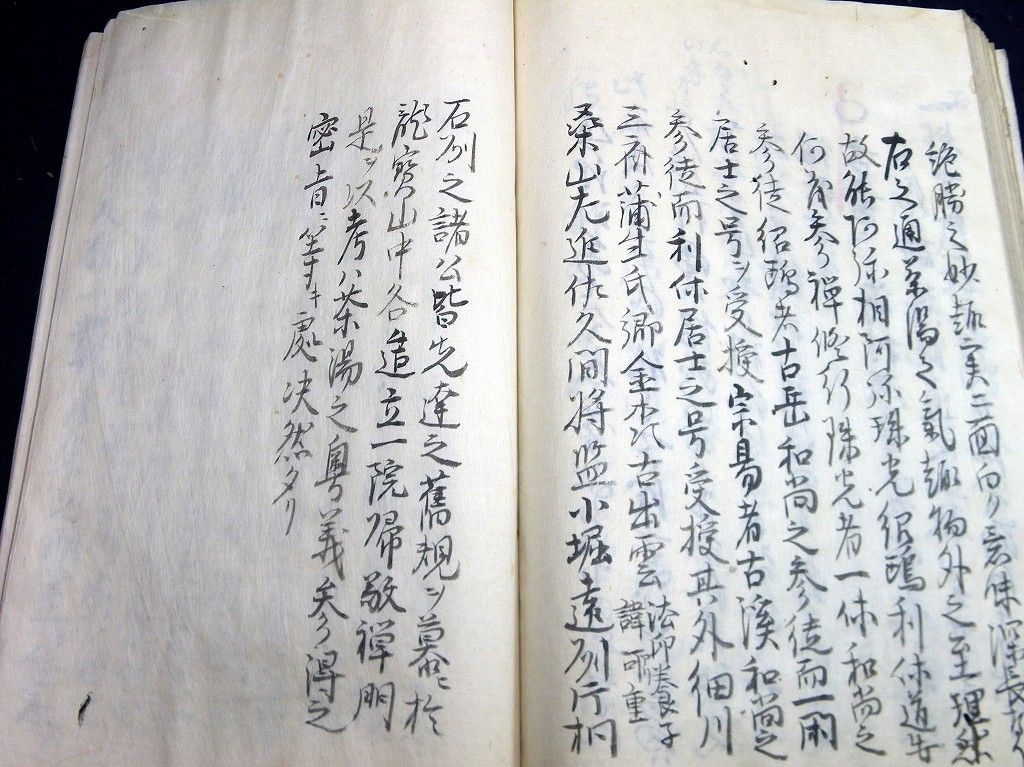 絶勝之妙趣ニ実ニ面白ク意味深長なり
右之通茶湯之氣趣物外之至理然
故能阿弥相阿弥珠光紹鴎利休道安
何茂参禅修行珠光者一休和尚之
参徒紹鴎者古岳和尚之参徒而一閑
居士之号ヲ受授宗易者古溪和尚之
参徒而利休居士之号受授其外細川
三斉蒲生氏卿金森古出雲法印長食子諱可重
桑山左近佐久間将监小堀遠刕片桐
石刕之諸公皆先達之舊規ヲ慕ニ於
龍寳山中各造立一院帰敬禅門
是ヲ以考ハ茶湯之奥義参得之
密旨ニ坐すキ處决然タリ